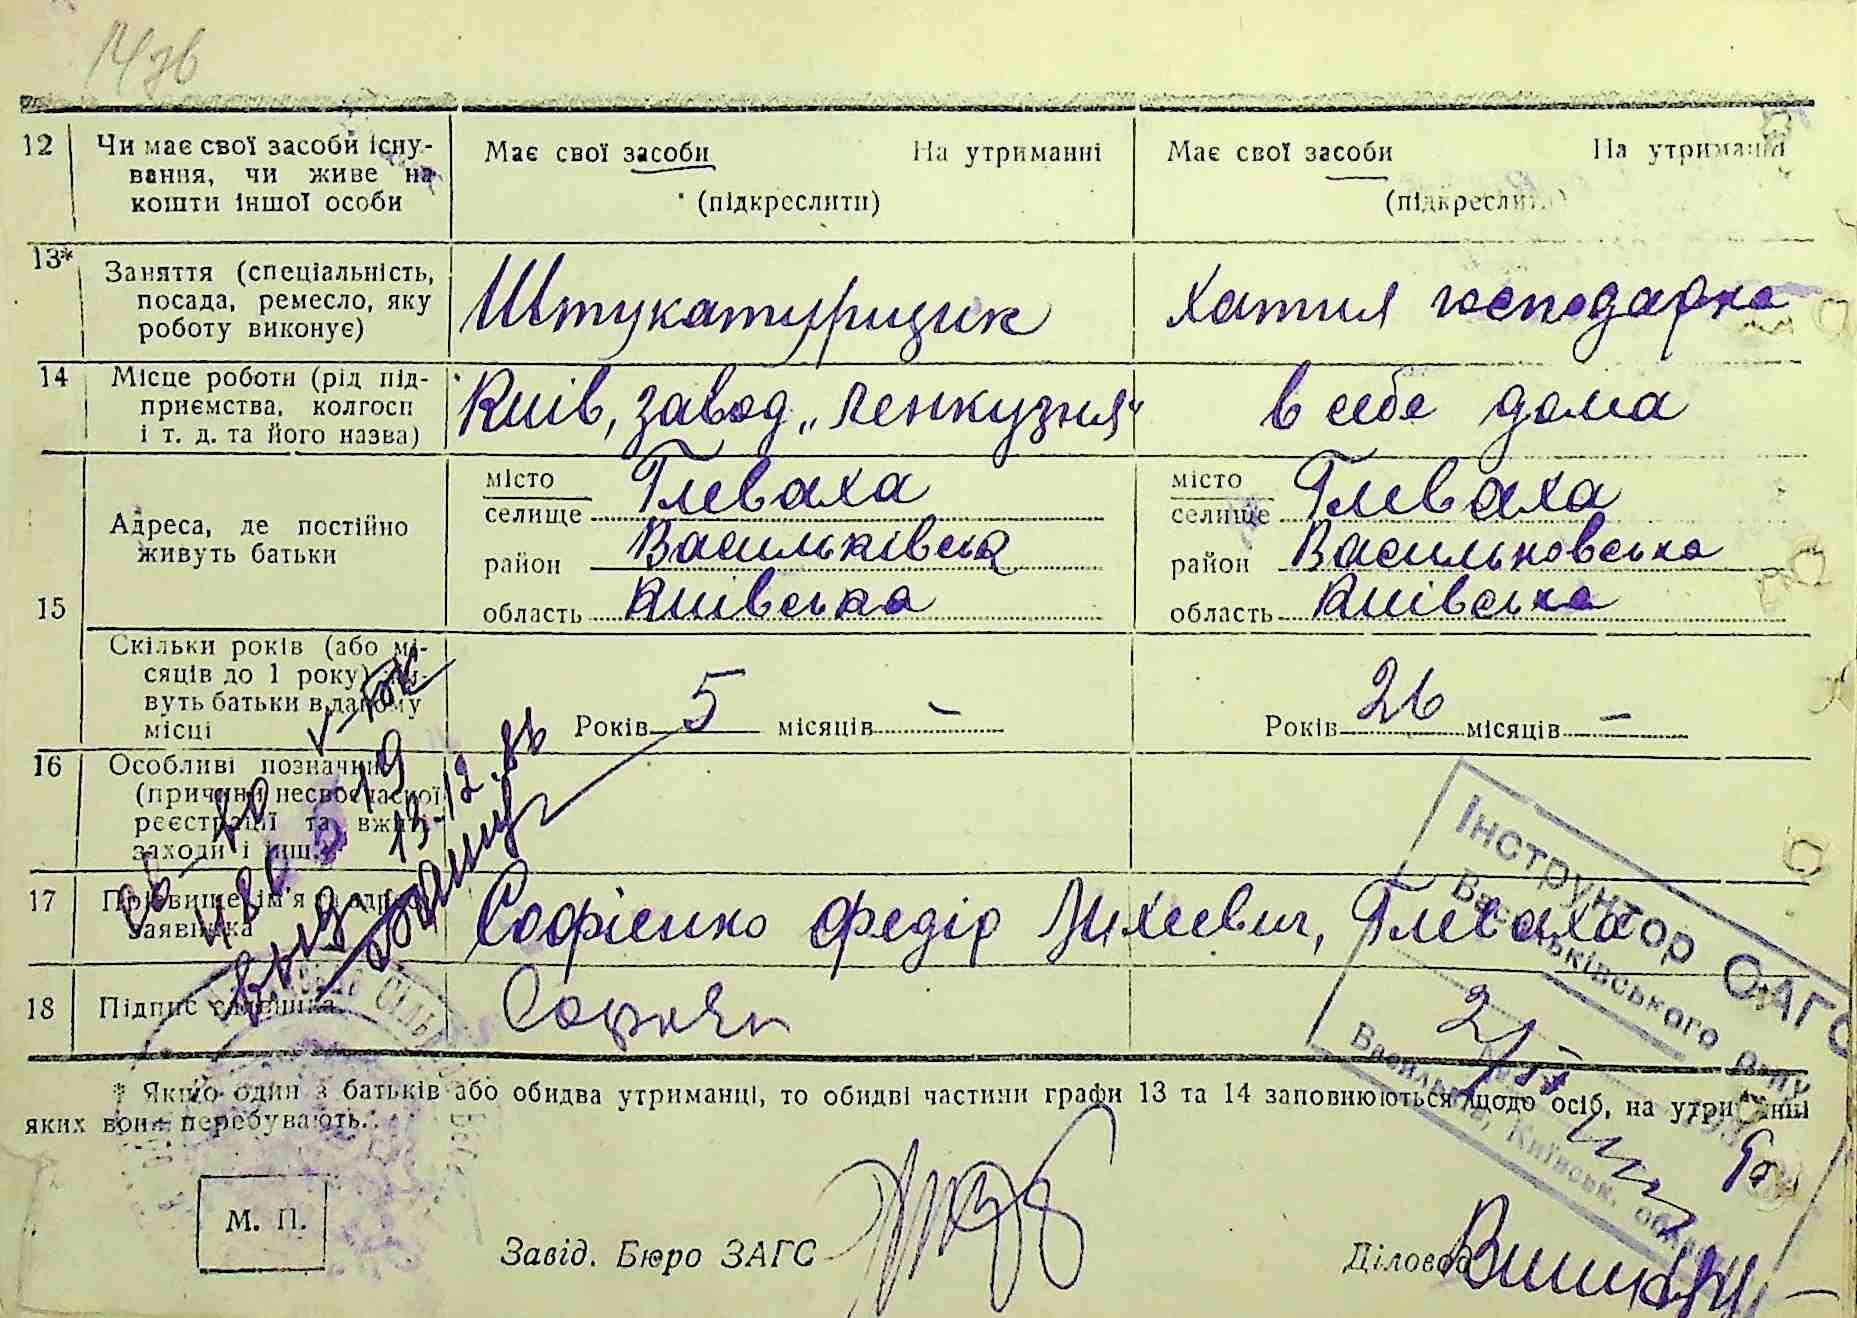 14зв
12 Чи має свої засоби існу-
вання, чи живе на
кошти іншої особи
Має свої засоби На утриманні
(підкреслити)
Має свої засоби На утриманні
(підкреслити)
13* Заняття (спеціальність,
посада, ремесло, яку
роботу виконує)
Штукатурщик
Хатня господарка
14 Місце роботи (рід під-
приємства, колгосп
і т. д. та його назва)
Київ, завод „Ленкузня"
в себе дома
15 Адреса, де постійно
живуть батьки
місто Глеваха
селище
район Васильківська
область Київська
місто Глеваха
селище
район Васильковська
область Київська
Скільки років (або мі-
сяців до 1 року) жи-
вуть батьки в даному
місці
Років 5 місяців –
Років 26 місяців –
16 Особливі позначки
(причини несвоєчасної
реєстрації та вжиті
заходи і інш.)
13.12.86
17 Прізвище, ім'я адреса
заявника
Софієнко Федір Михеевич, Глеваха
18 Підпис заявника
* Якщо один з батьків або обидва утриманці, то обидві частини графи 13 та 14 заповнюються щодо осіб, на утриманні
яких вони перебувають.
Інструктор ОАГС
Васильківського р-ну
Васильків, Київськ. обл.
М. П.
Завід. Бюро ЗАГС
Діловод